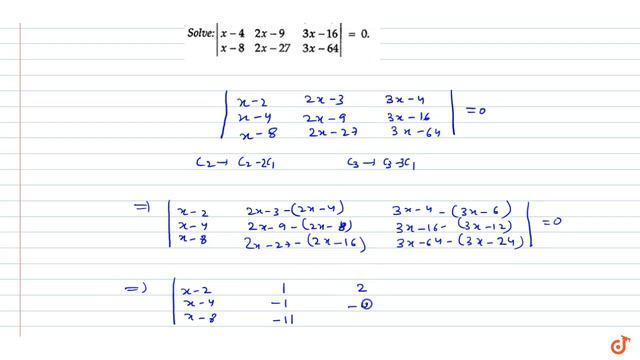 Solve: x − 4 2x − 9 3x − 16 = 0.
x − 8 2x − 27 3x − 64
x−2 2x−3 3x−4
x−4 2x−9 3x−16 =0
x−8 2x−27 3x−64
C2→ C2−2C1 C3→ C3−3C1
=) x−2 2x−3−(2x−4) 3x−4−(3x−6)
x−4 2x−9−(2x−8) 3x−16−(3x−12) =0
x−8 2x−27−(2x−16) 3x−64−(3x−24)
=) x−2 1 2
x−4 −1
x−8 −11
doubtnut